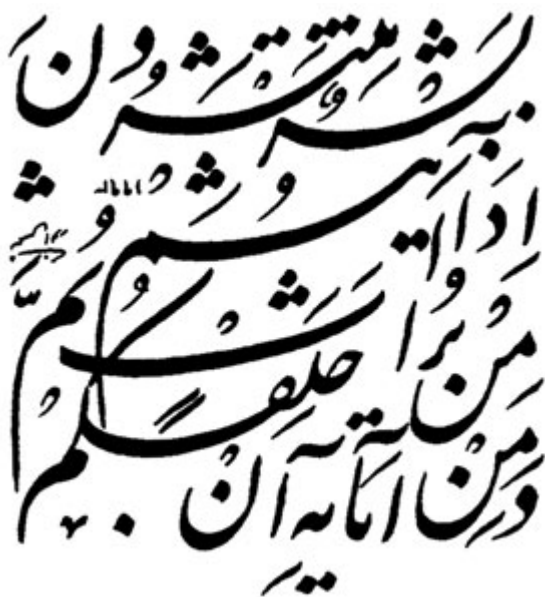 وَمِنْ آيَاتِهِ أَنْ خَلَقَكُمْ
مِنْ تُرَابٍ ثُمَّ
إِذَا أَنْتُمْ
بَشَرٌ تَنْتَشِرُونَ